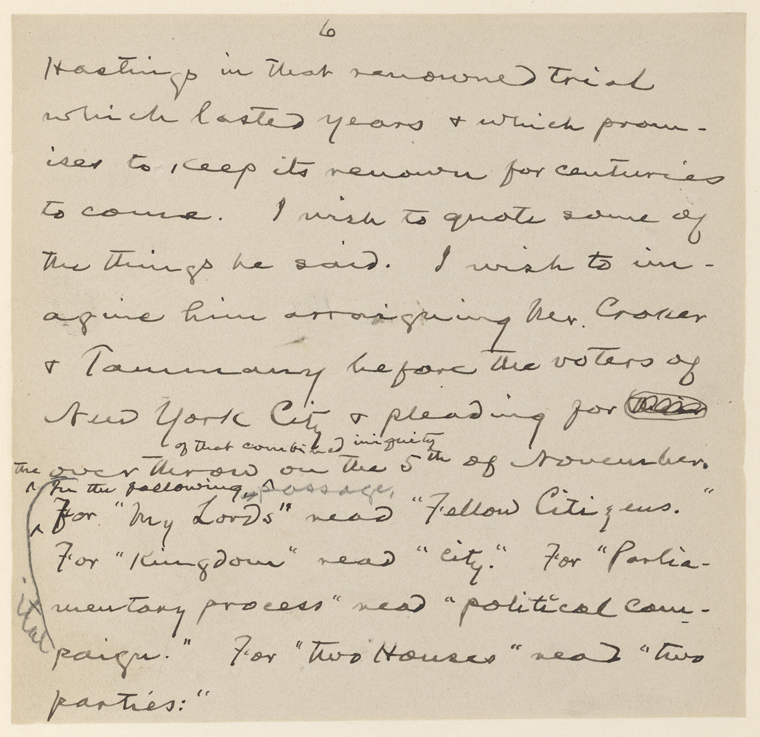 6
Hastings in that renowned trial
which lasted years & which prom-
ises to keep its renown for centuries
to come. I wish to quote some of
the things he said. I wish to im-
agine him arraigning Mr. Croker
& Tammany before the voters of
New York City & pleading for
of that combined iniquity
the overthrow on the 5th of November.
In the following passage,
For "My Lords" read "Fellow Citizens."
For "Kingdom" read "city." For "Parlia-
mentary process" read "political cam-
ital
paign." For "two Houses" read "two
parties:"